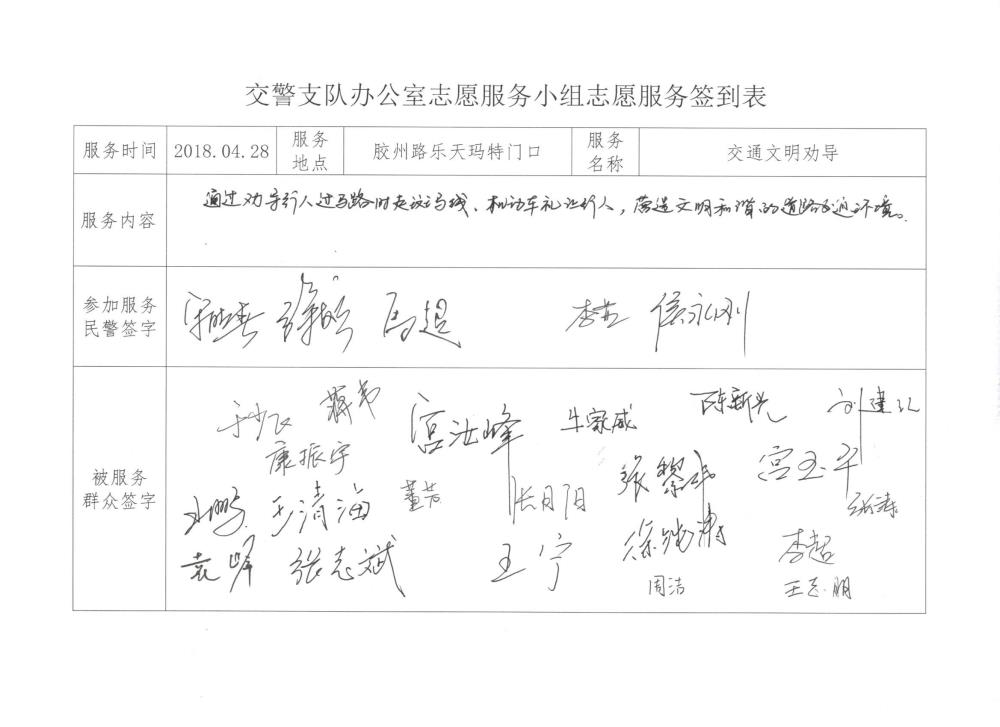 交警支队办公室志愿服务小组志愿服务签到表
服务时间 2018.04.28 服务地点 胶州路乐天玛特门口 服务名称 交通文明劝导
服务内容 通过劝导行人过马路时走斑马线、机动车礼让行人,营造文明和谐的道路交通环境。
参加服务民警签字 马超 李芸 侯永刚
被服务群众签字
蒋弟 牛家威 陈新光 刘建江
康振宇 宫玉平
王清海 董芳 张涛
袁峰 张志斌 王宁 李超
周洁 王志明